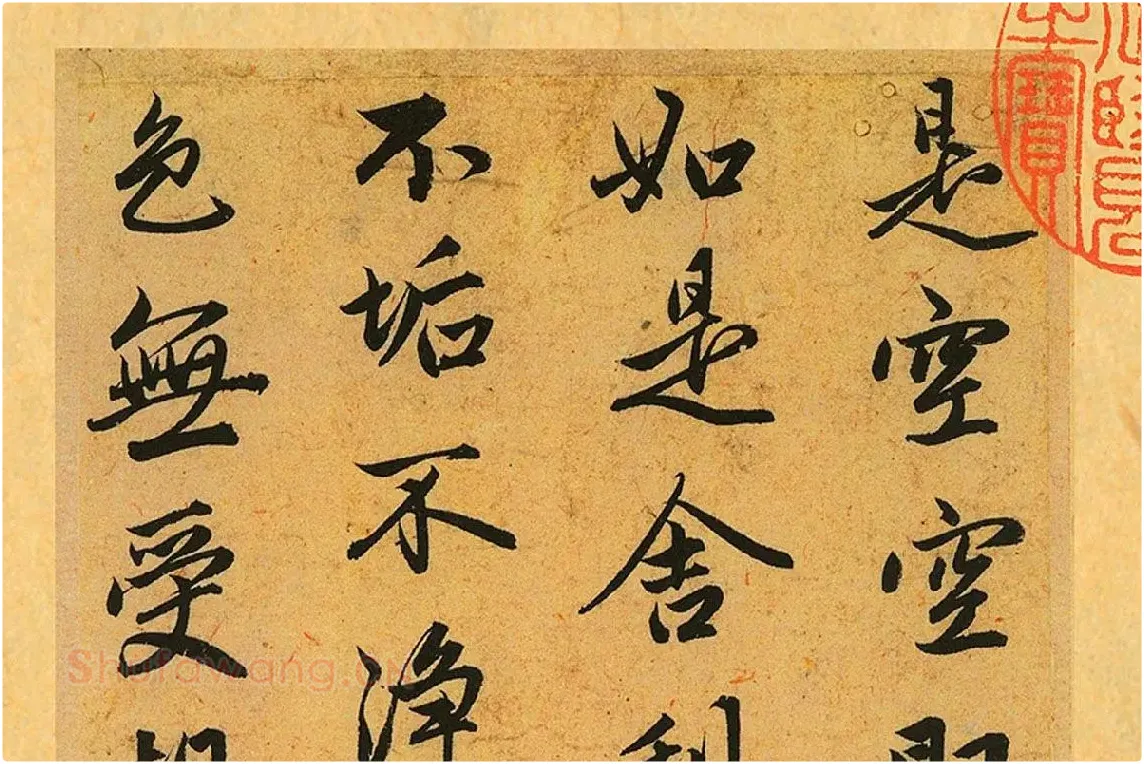 是空空即
如是舍利
不垢不淨
色無受想
Shufawang.cn